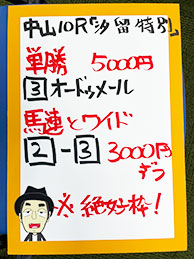 中山10R「汐留特別」
単勝 5000円
3 オードゥメール
馬連とワイド
2-3 3000円
ずつ
※絶好枠!